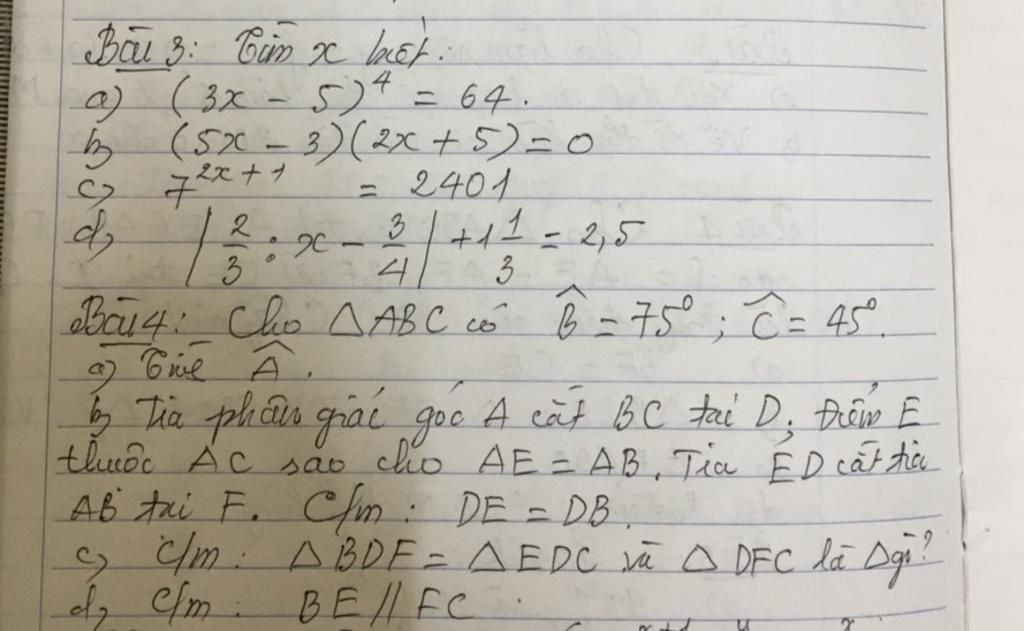 Bài 3: Tìm x biết:
a) (3x - 5)^4 = 64.
b) (5x - 3)(2x + 5) = 0
c) 7^{2x + 1} = 2401
d) |2/3 : x - 3/4| + 1 1/3 = 2,5
Bài 4: Cho △ABC có B̂ = 75°; Ĉ = 45°.
a) Tính Â.
b) Tia phân giác góc A cắt BC tại D. Điểm E
thuộc AC sao cho AE = AB. Tia ED cắt tia
AB tại F. C/m: DE = DB.
c) C/m: △BDF = △EDC và △DFC là △gì?
d) C/m: BE // FC.